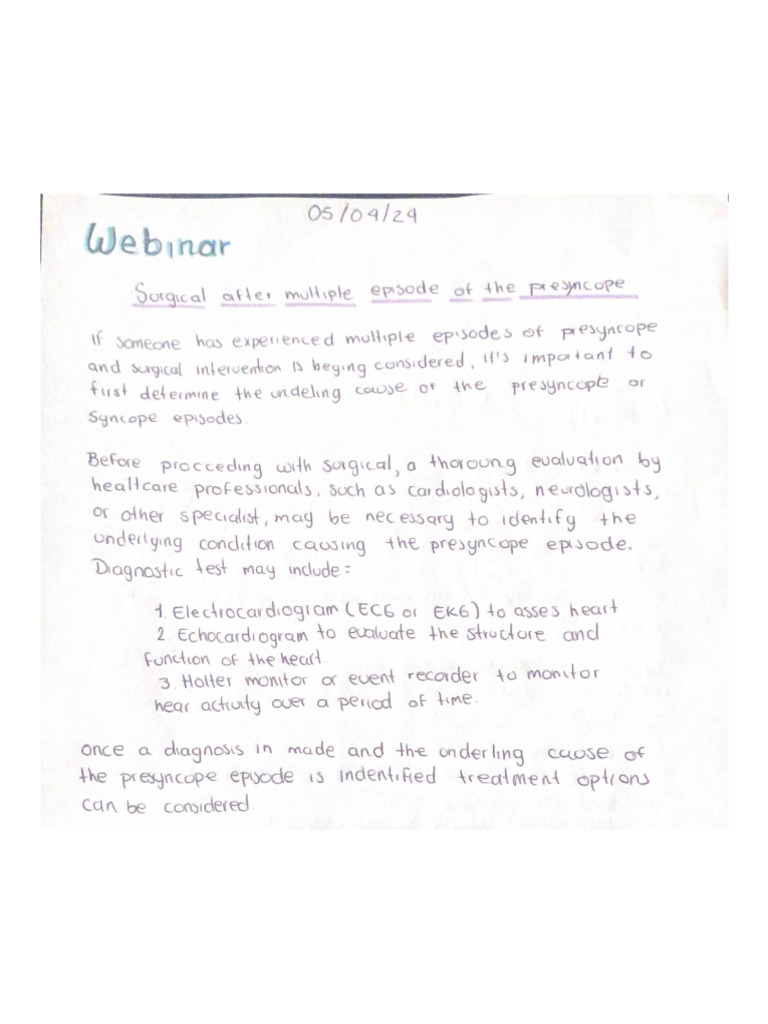 05/04/24
Webinar
Surgical after multiple episode of the presyncope
If someone has experienced multiple episodes of presyncope
and surgical intervention is beging considered, it's important to
first determine the undeling cause of the presyncope or
Syncope episodes.
Before procceding with surgical, a thoroung evaluation by
healtcare professionals, such as cardiologists, neurologists,
or other specialist, may be necessary to identify the
underlying condition causing the presyncope episode.
Diagnostic test may include:
1. Electrocardiogram (ECG or EKG) to asses heart
2. Echocardiogram to evaluate the structure and
function of the heart.
3. Holter monitor or event recorder to monitor
hear activity over a period of time.
once a diagnosis in made and the underling cause of
the presyncope episode is indentified treatment options
can be considered.